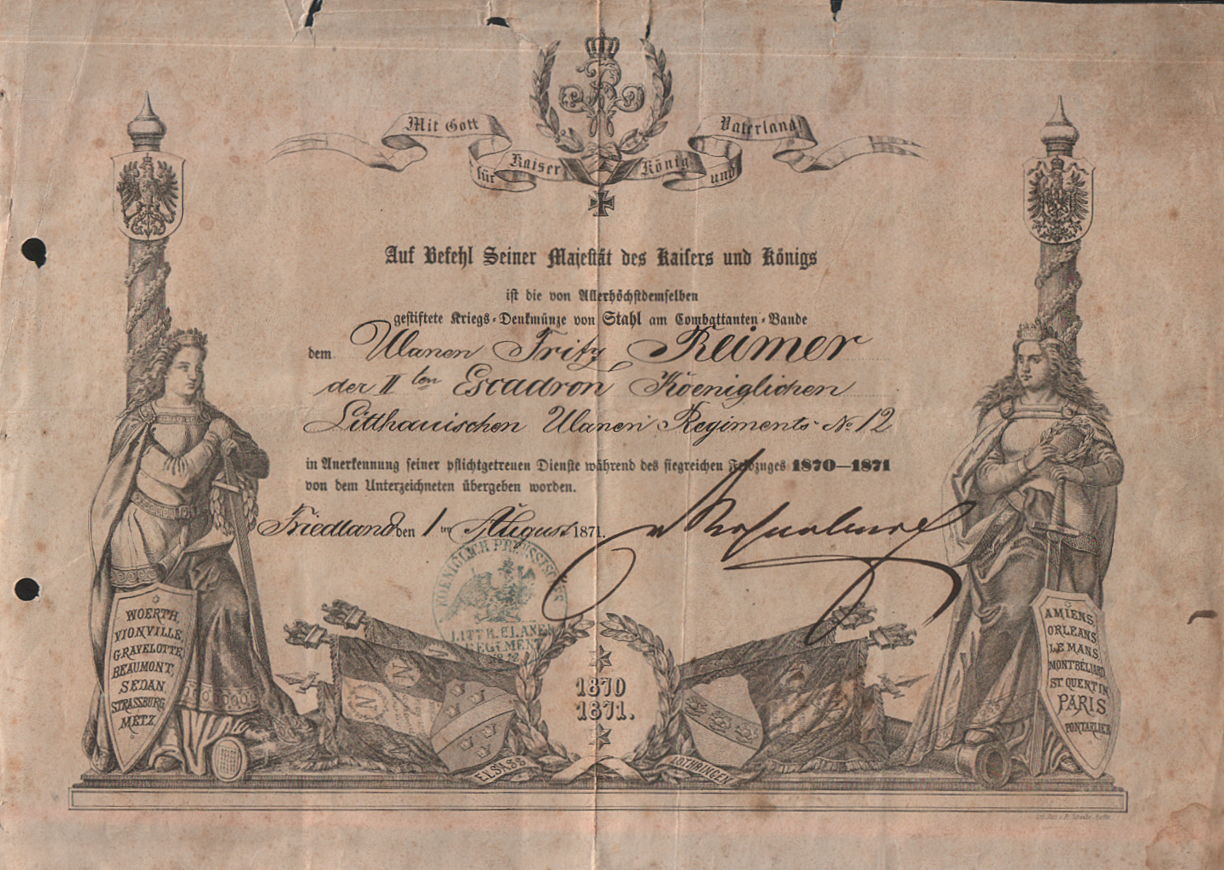 Mit Gott
für Kaiser König und
Vaterland!
Auf Befehl Seiner Majestät des Kaisers und Königs
ist die von Allerhöchstdemselben
gestiftete Kriegs-Denkmünze von Stahl am Combattanten-Bande
dem Ulanen Fritz Reimer
der II ten Escadron Köeniglichen
Litthauischen Ulanen Regiments No 12
in Anerkennung seiner pflichtgetreuen Dienste während des siegreichen Feldzuges 1870—1871
von dem Unterzeichneten übergeben worden.
Friedland den 1 ten August 1871.
KOENIGLICH PREUSSISCHES
LITTH. ULANEN
REGIMENT
No 12
WOERTH,
VIONVILLE,
GRAVELOTTE,
BEAUMONT,
SEDAN,
STRASSBURG,
METZ.
N
N
1870
1871.
ELSASS
LOTHRINGEN
AMIENS,
ORLEANS,
LE MANS,
MONTBÉLIARD
ST QUENTIN
PARIS
PONTARLIER